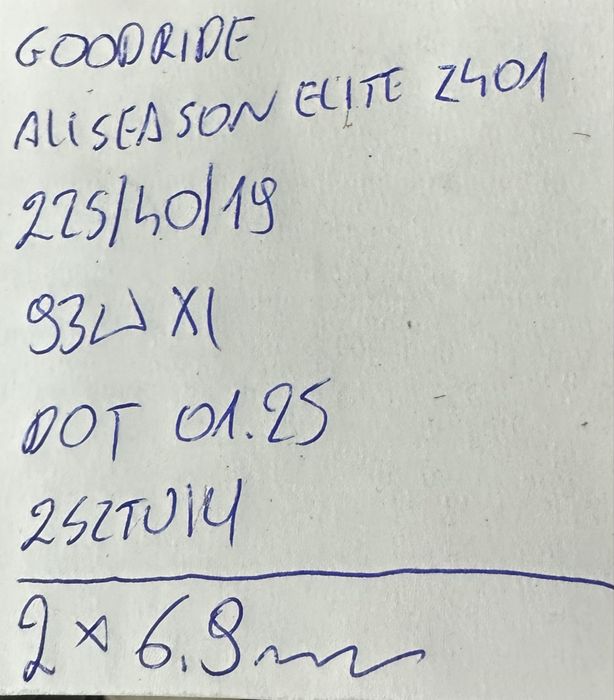 GOODRIDE
ALISEASON ELITE Z401
225/40/19
93W XL
DOT 01.25
2 SZTUKI
2 x 6.9mm